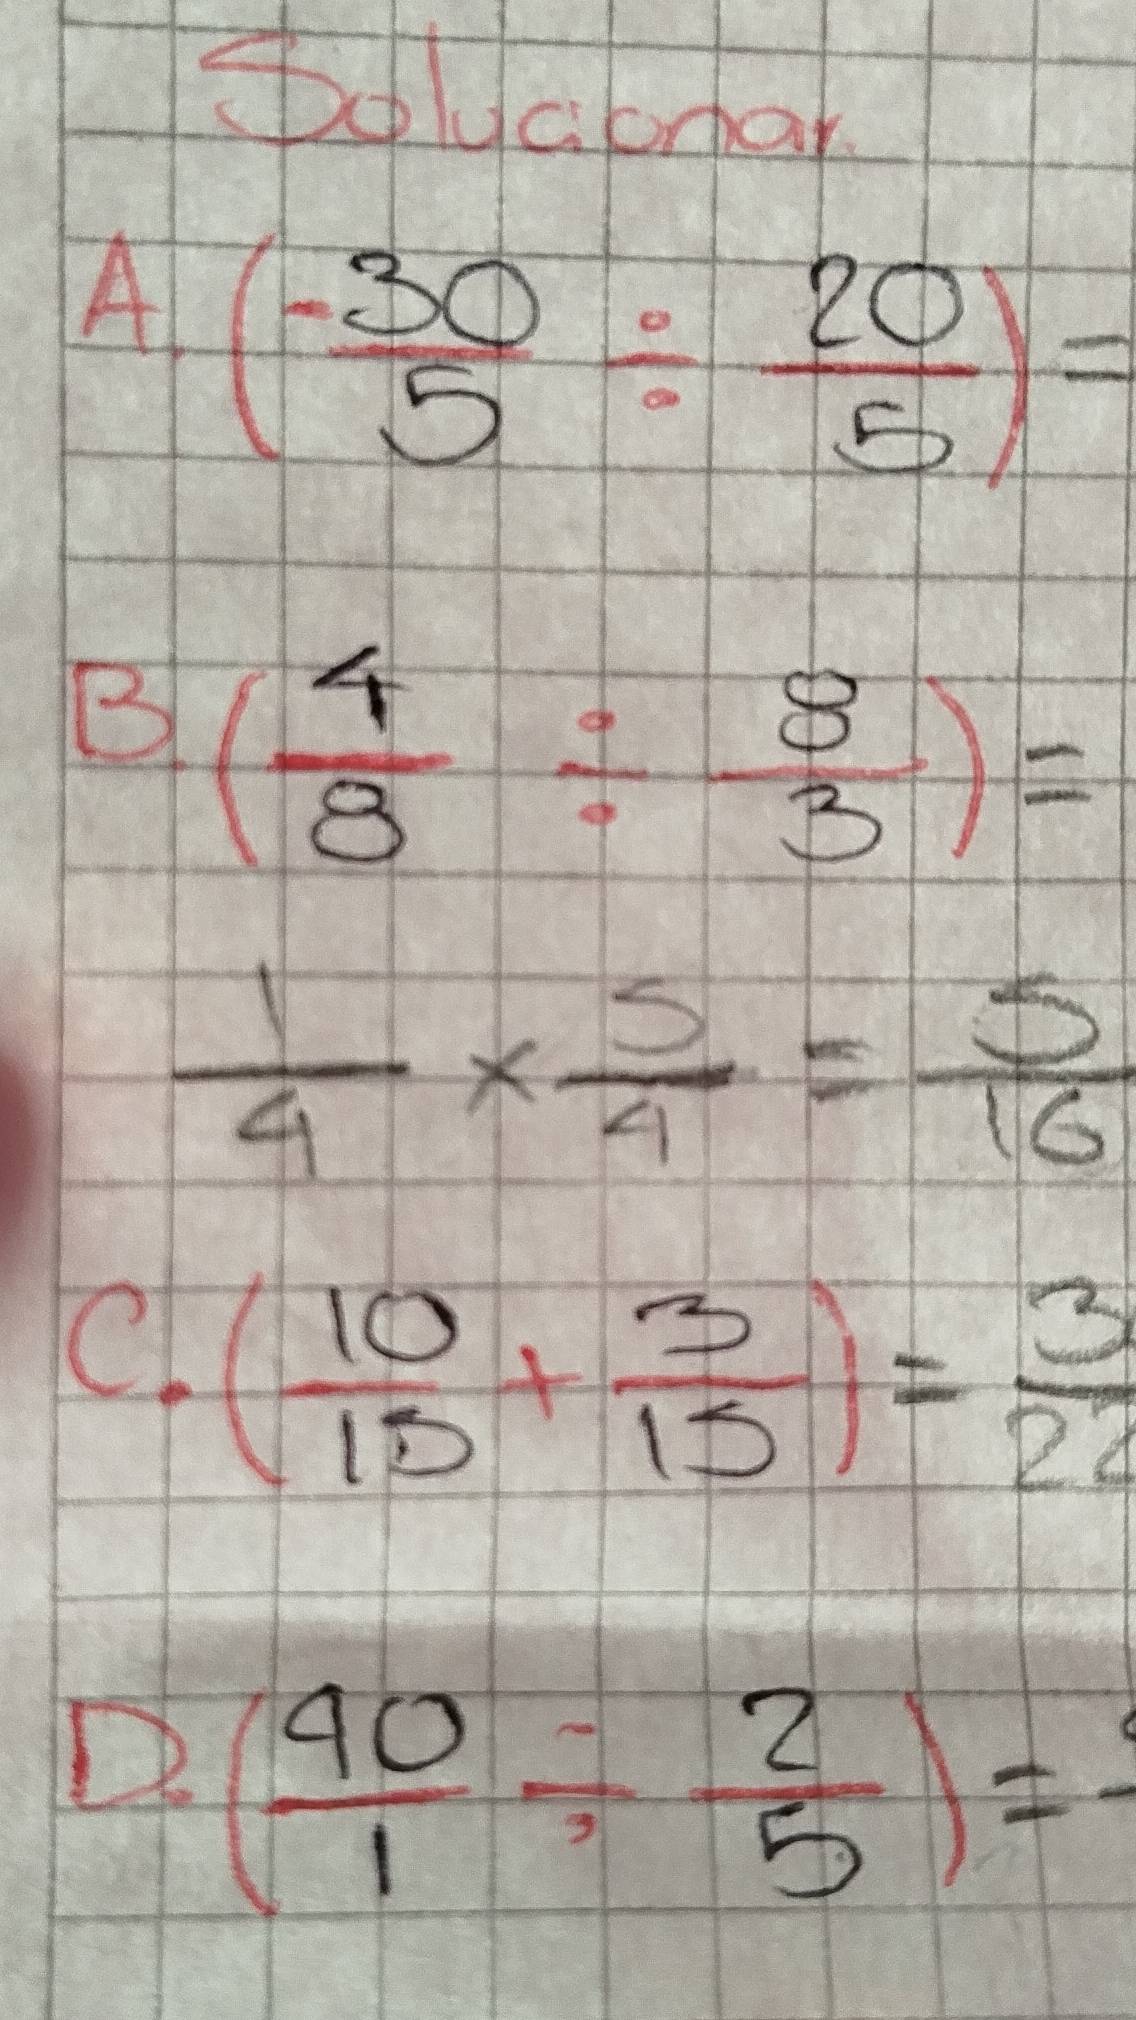 Solucionar.
A. (-30/5 ÷ 20/5) =
B. (4/8 ÷ 8/3) =
1/4 × 5/4 = 5/16
C. (10/15 + 3/15) = 3/22
D. (40/1 ÷ 2/5) =